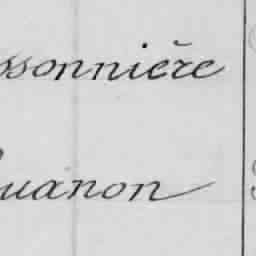 ssonnière
uanon